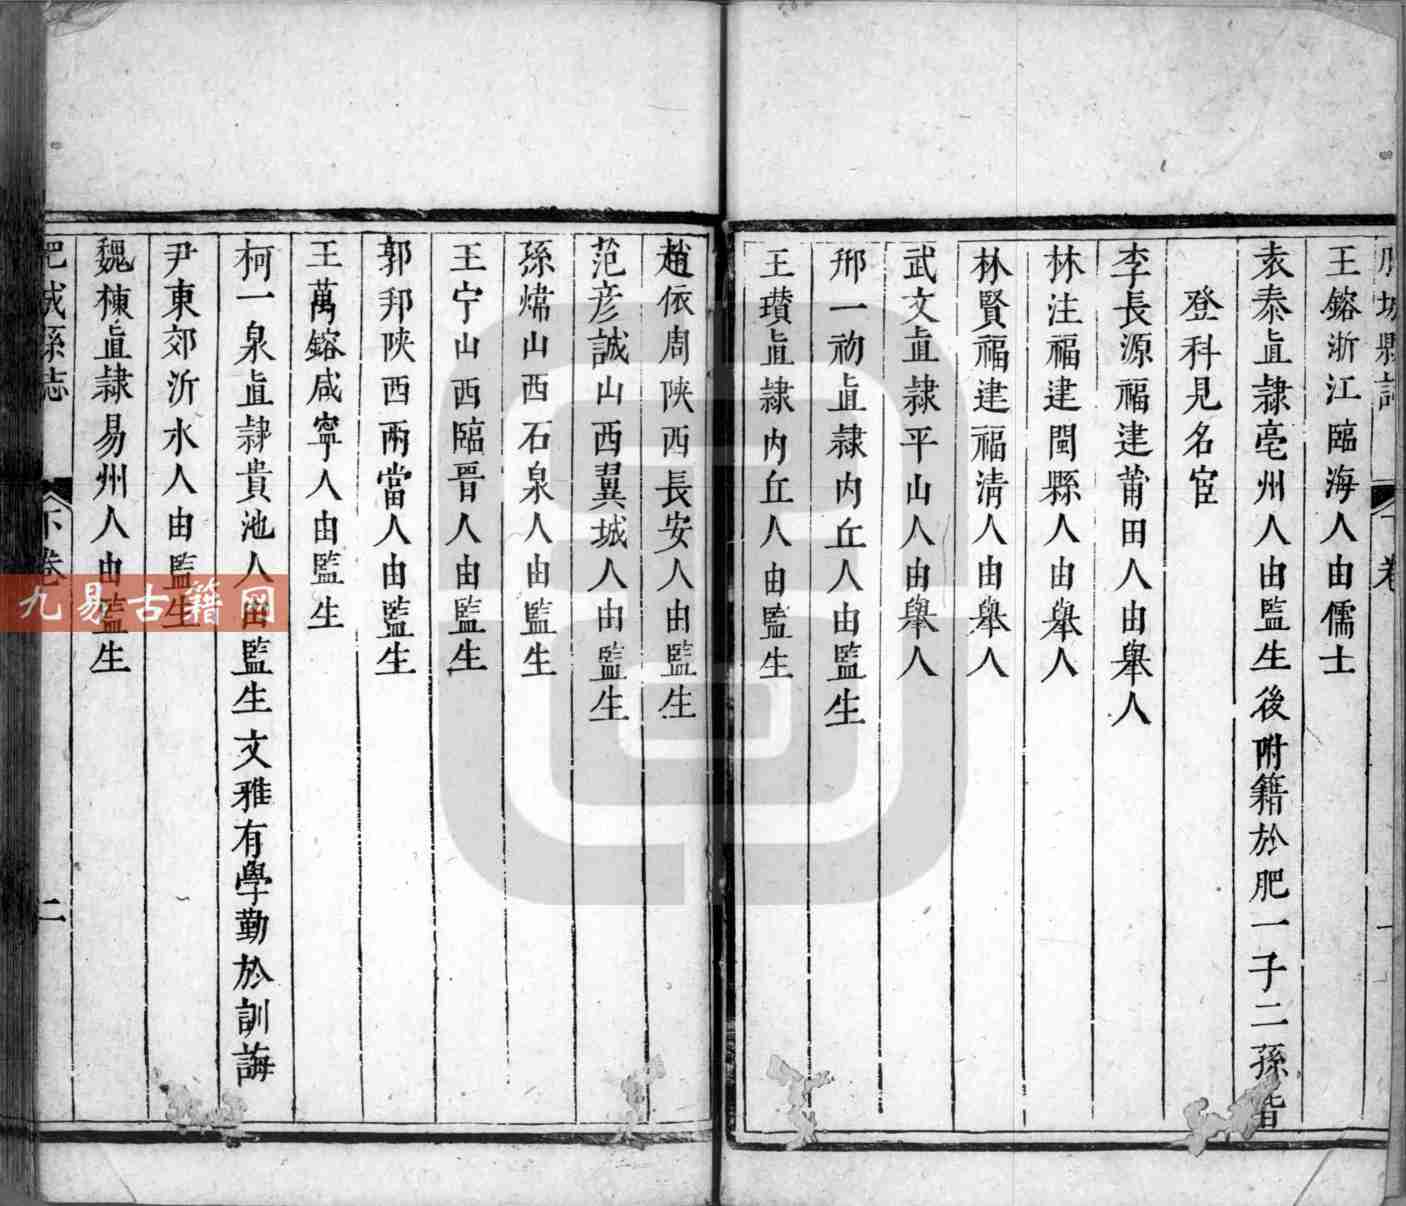 肥城縣誌
下卷
一
王鎔浙江臨海人由儒士
袁泰直隷亳州人由監生後附籍於肥一子二孫皆
登科見名宦
李長源福建莆田人由舉人
林注福建閩縣人由舉人
林賢福建福清人由舉人
武文直隷平山人由舉人
邢一初直隷内丘人由監生
王瓚直隷内丘人由監生
趙依周陜西長安人由監生
范彦誠山西翼城人由監生
孫煒山西石泉人由監生
王宁山西臨晉人由監生
郭邦陜西兩當人由監生
王萬鎔咸寧人由監生
柯一泉直隷貴池人由監生文雅有學勤於訓誨
尹東郊沂水人由監生
魏棟直隷易州人由監生
肥城縣志
下卷
二
九易古籍网